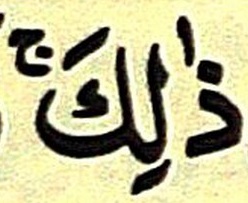 ذَٰلِكَ ۚ